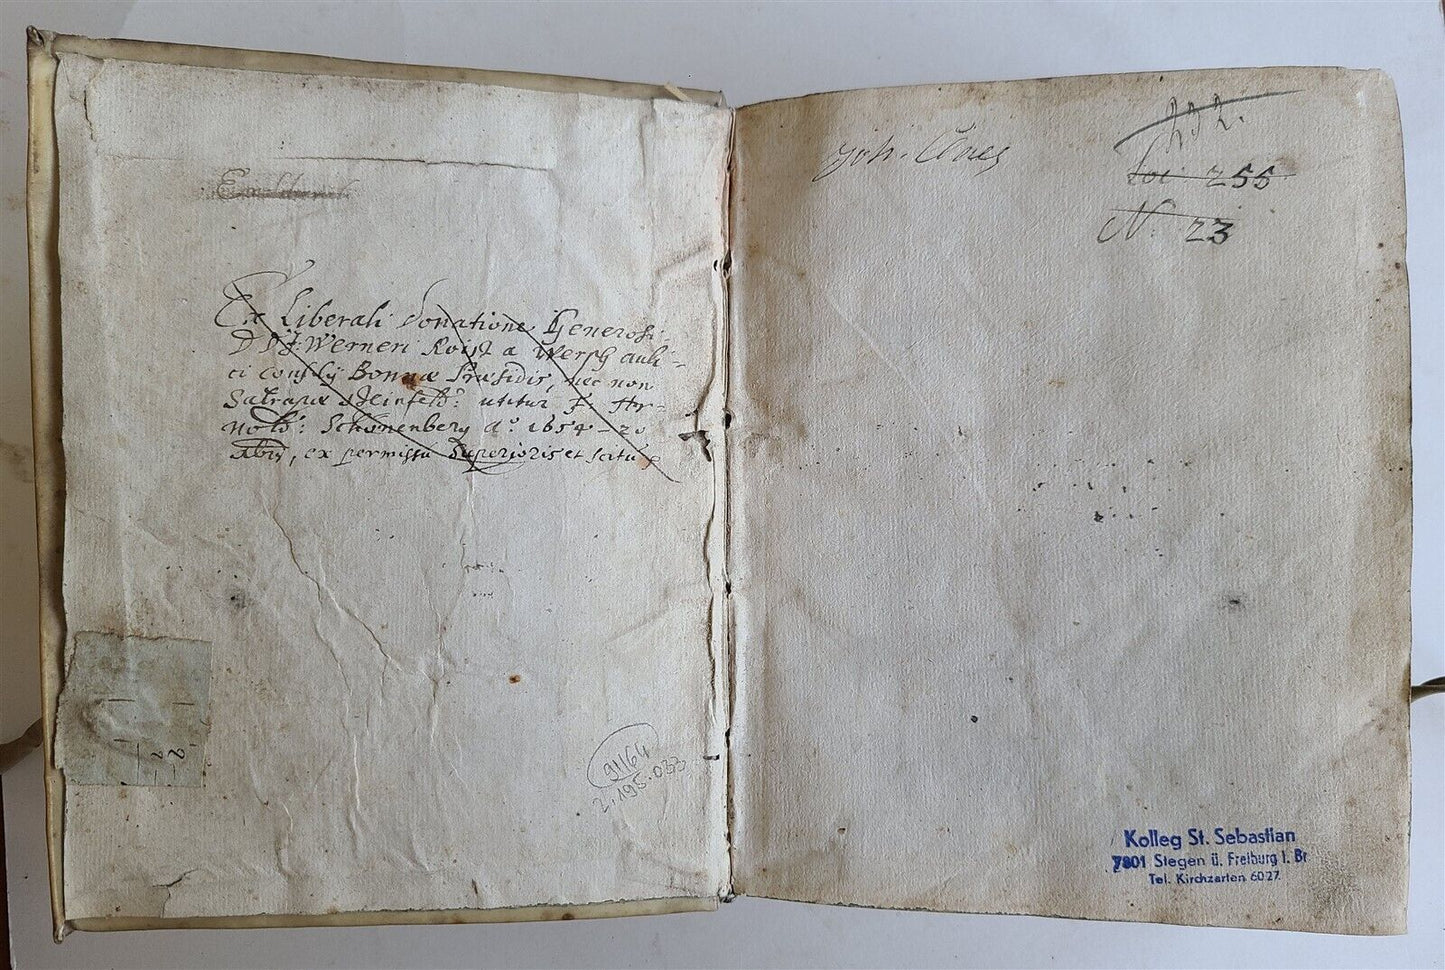 Ex Liberali donatione Generosi
D D J: Werneri Roist a Wersh auli-
ci consilij Bonnæ Præsidis, nec non
Satrapæ Heinseb: utitur F. Ar-
nold: Schönenberg a.° 1654 - 20
Xbris, ex permissu Superioris et scitu
91164
2.195.033
Joh.
232.
Loc. 255
N. 23
Kolleg St. Sebastian
7801 Stegen ü. Freiburg i. Br
Tel. Kirchzarten 6027